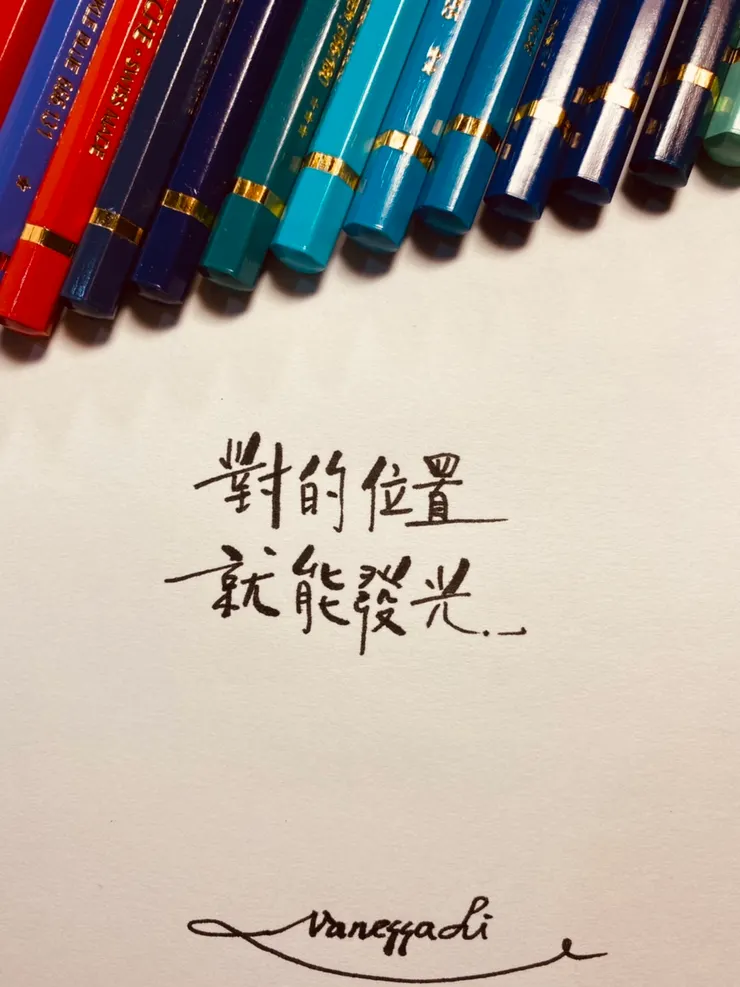 SWISS MADE
對的位置
就能發光..
Vanessa Li